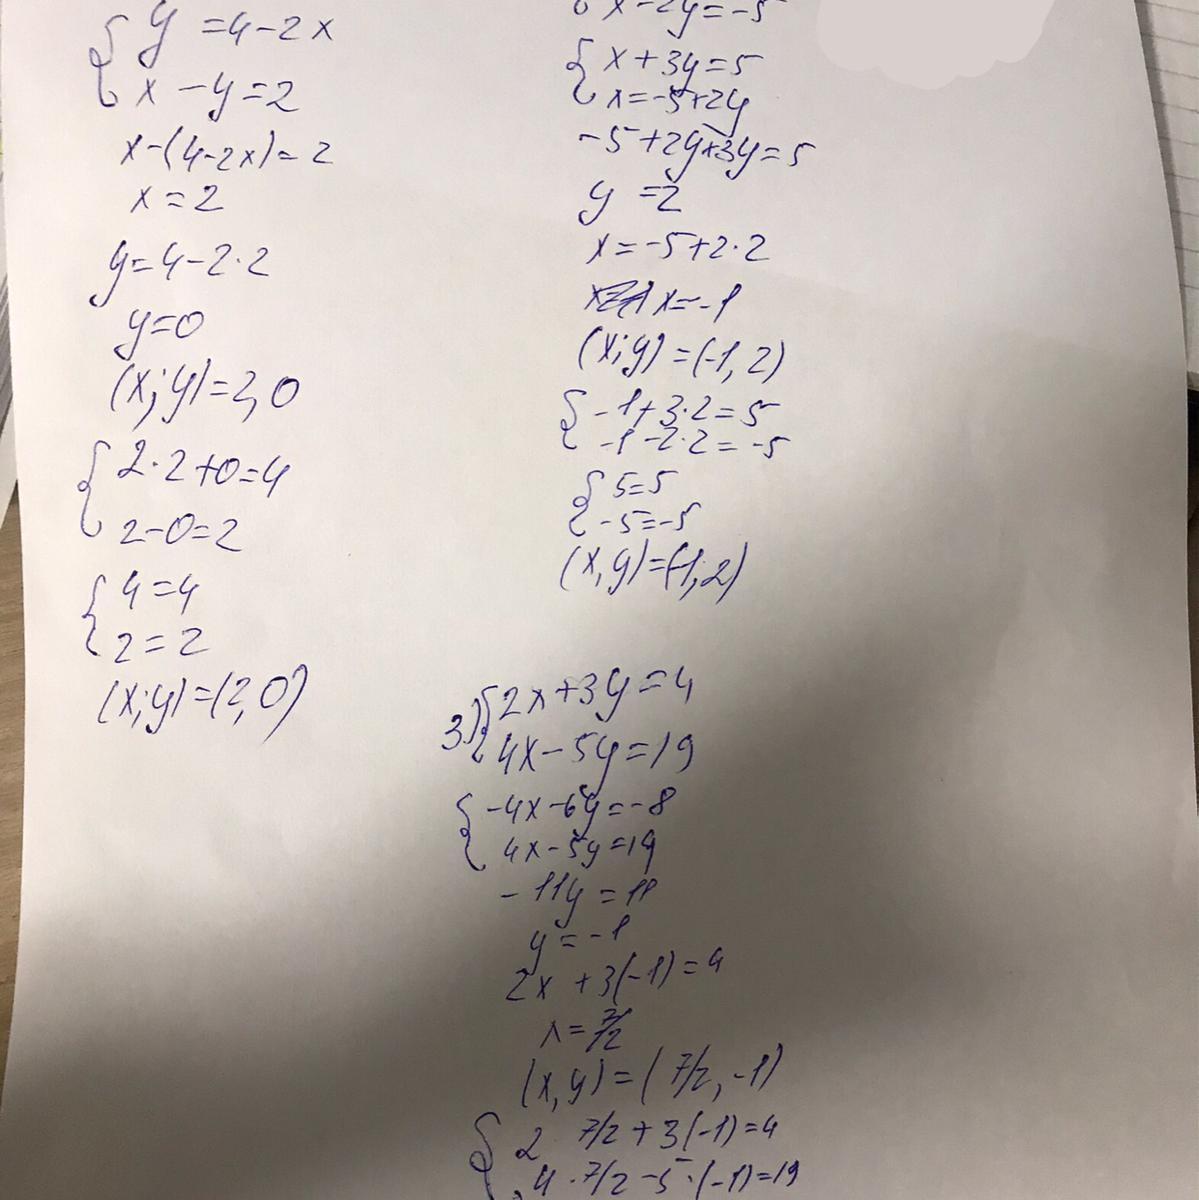 { y = 4-2x
{ x - y = 2
x-(4-2x)=2
x = 2
y=4-2·2
y=0
(x;y)=2,0
{ 2·2+0=4
{ 2-0=2
{ 4=4
{ 2=2
(x;y)=(2,0)
x-2y=-5
{ x+3y=5
{ x=-5+2y
-5+2y+3y=5
y =2
x=-5+2·2
x=-1
(x;y)=(-1,2)
{ -1+3·2=5
{ -1-2·2=-5
{ 5=5
{ -5=-5
(x,y)=(-1;2)
3) { 2x+3y=4
{ 4x-5y=19
{ -4x-6y=-8
{ 4x-5y=19
-11y=11
y=-1
2x+3(-1)=4
x=7/2
(x,y)=(7/2,-1)
{ 2 7/2+3(-1)=4
{ 4·7/2-5·(-1)=19